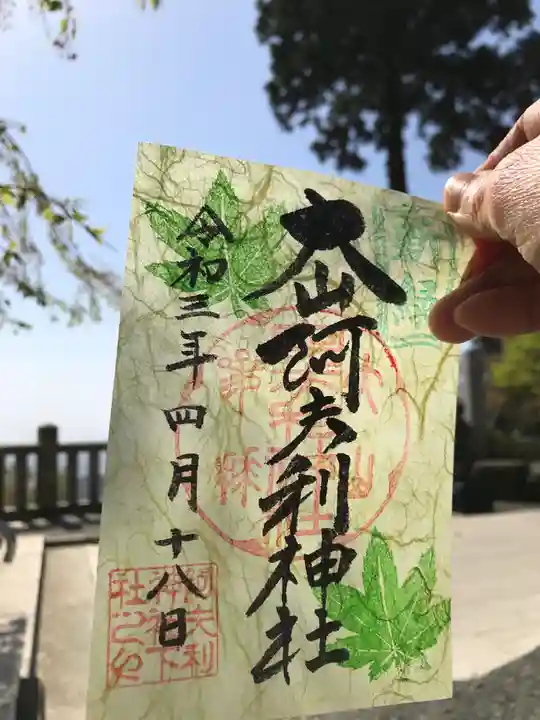 大山阿夫利神社
令和三年四月十八日
阿夫利
神社下
社之印